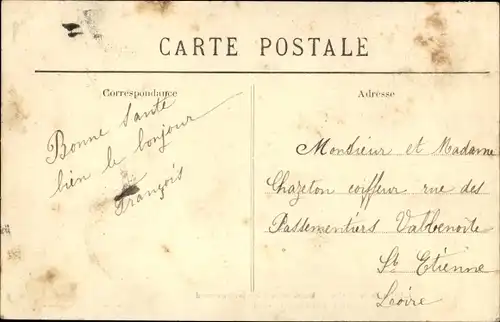 CARTE POSTALE
Correspondance
Bonne Santé
bien le bonjour
François
Adresse
Monsieur et Madame
Chazeton coiffeur rue des
Passementiers Valbenoite
St Etienne
Loire